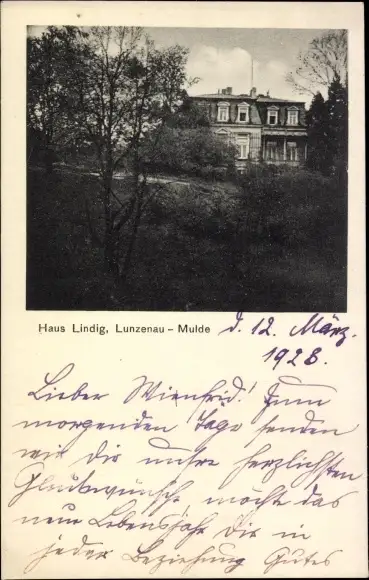 Haus Lindig, Lunzenau – Mulde
d. 12. März.
1928.
Lieber Wienfrid! Zum
morgenden Tage senden
wir Dir unsre herzlichsten
Glückwünsche, möcht das
neue Lebensjahr Dir in
jeder Beziehung Gutes